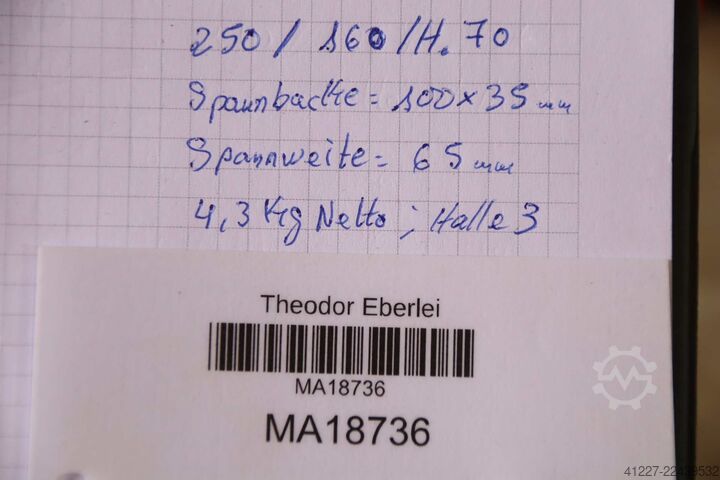 250 / 160 / H. 70
Spannbacke = 100 x 35 mm
Spannweite = 65 mm
4,3 Kg Netto ; Halle 3
Theodor Eberlei
MA18736
MA18736
41227-22439532